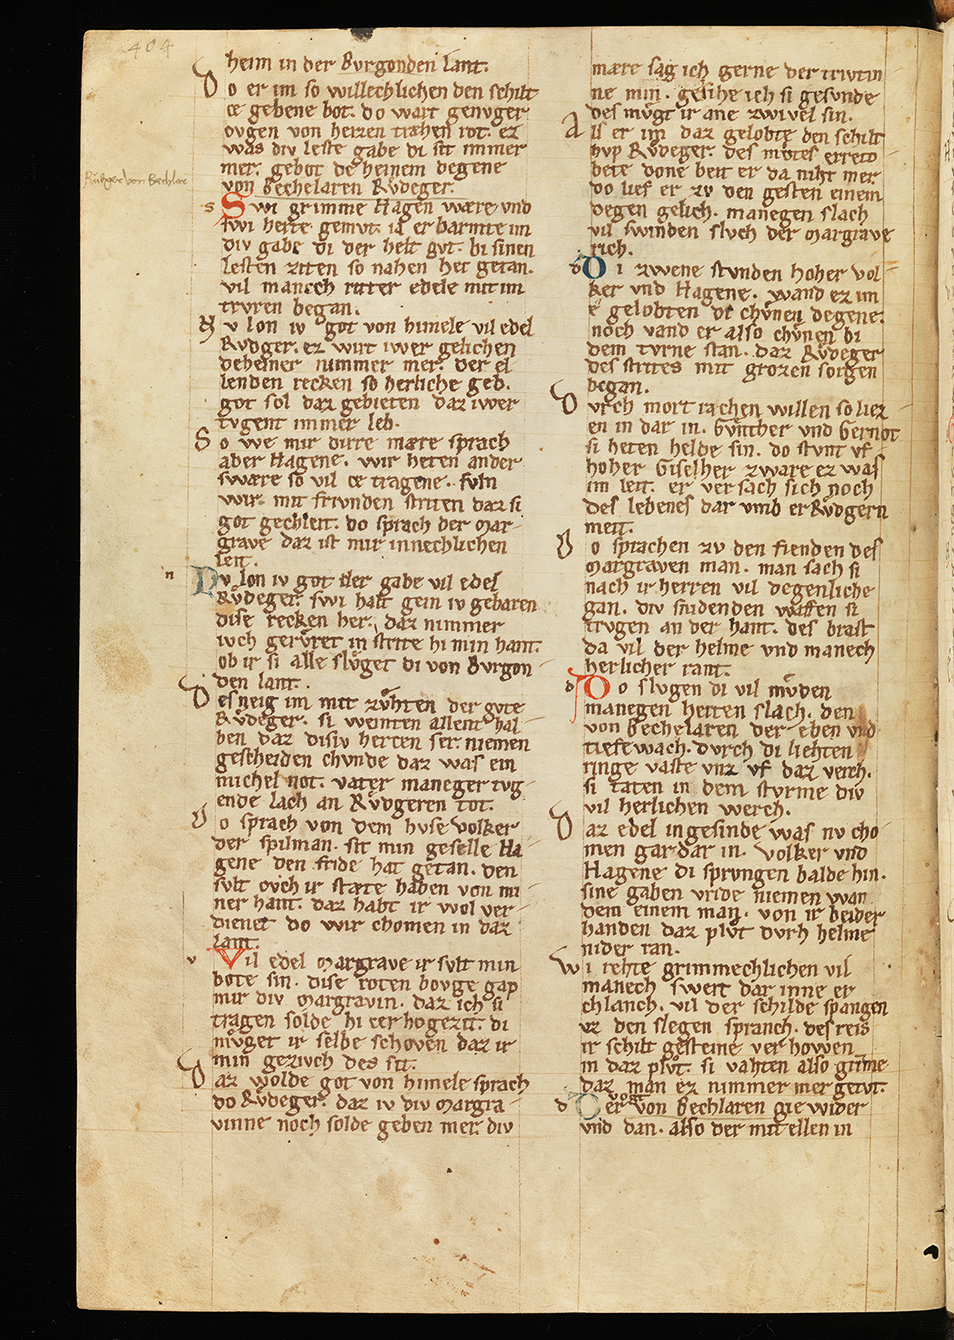 404
heim in der Burgonden lant.
Do er im so willechlichen den schilt
ce gebene bot. do wart genvger
ovgen von heizen trahen rot. ez
was div leste gabe di sit immer
mer. gebot deheinem degene
von Bechelaren Rvdeger.
Rüdger von Bechlar
s Swi grimme Hagen wære vnd
swi herte gemvt. ia erbarmte im
div gabe di der helt gvt. bi sinen
lesten ziten so nahen het getan.
vil manech ritter edele mit im
trvren began.
Nv lon iv got von himele vil edel
Rvdger. ez wirt iwer gelichen
deheiner nimmer mer. der el
lenden recken so herliche geb.
got sol daz gebieten daz iwer
tvgent immer leb.
So we mir dirre mære sprach
aber Hagene. wir heten ander
swære so vil ce tragene. svln
wir mit frivnden striten daz si
got gechleit. do sprach der mar-
grave daz ist mir innechlichen
leit.
n Nv lon iv got der gabe vil edel
Rvdeger. swi halt gein iv gebaren
dise recken her. daz nimmer
ivch gervret in strite hi min hant.
ob ir si alle slvget di von Bvrgon-
den lant.
Des neig im mit zvhten der gvte
Rvdeger. si weinten allent hal-
ben daz disiv herten ser. niemen
gescheiden chvnde daz was ein
michel not. vater maneger tvg-
ende lach an Rvdgeren tot.
Do sprach von dem hvse Volker
der spilman. sit min geselle Ha-
gene den fride hat getan. den
svlt ovch ir stæte haben von mi-
ner hant. daz habt ir wol ver-
dienet do wir chomen in daz
lant.
v Vil edel margrave ir svlt min
bote sin. dise roten bovge gap
mir div margravin. daz ich si
tragen solde hi cer hogezit. di
mvget ir selbe schoven daz ir
min geziwch des sit.
Daz wolde got von himele sprach
do Rvdeger. daz iv div margra-
vinne noch solde geben mer. div
mære sag ich gerne der trivtin
ne min. gesihe ich si gesvnde
des mvgt ir ane zwivel sin.
Als er im daz gelobte den schilt
hvp Rvdeger. des mvtes erreto
bete done beit er da niht mer
do lief er zv den gesten einem
degen gelich. manegen slach
vil swinden slvch der margrave
rich.
d Di zwene stvnden hoher Vol-
ker vnd Hagene. wand ez im
e gelobten di chvnen degene.
noch vand er also chvnen bi
dem tvrne stan. daz Rvdeger
des strites mit grozen sorgen
began.
Dvrch mortrachen willen so liez
en in dar in. Gvnther vnd Gernot
si heten helde sin. do stvnt vf
hoher Giselher zware ez was
im leit. er versach sich noch
des lebenes dar vmb er Rvdgern
meit.
Do sprachen zv den fienden des
margraven man. man sach si
nach ir herren vil degenliche
gan. div snidenden waffen si
trvgen an der hant. des brast
da vil der helme vnd manech
herlicher rant.
d Do slvgen di vil mvden
manegen herten slach. den
von Bechelaren der eben vnd
tiefe wach. dvrch di liehten
ringe vaste vnz vf daz verch.
si taten in dem stvrme div
vil herlichen werch.
Daz edel ingesinde was nv cho-
men gar dar in. Volker vnd
Hagene di sprvngen balde hin.
sine gaben vride niemen wan
dem einem man. von ir beider
handen daz plvt dvrh helme
nider ran.
Wi rehte grimmechlichen vil
manech swert dar inne er
chlanch. vil der schilde spangen
vz den slegen spranch. des reis
ir schilt gesteine verhowen
in daz plvt. si vahten also grime
daz man ez nimmer mer getvt.
d Der vogt von Bechlaren gie wider
vnd dan. also der mit ellen in